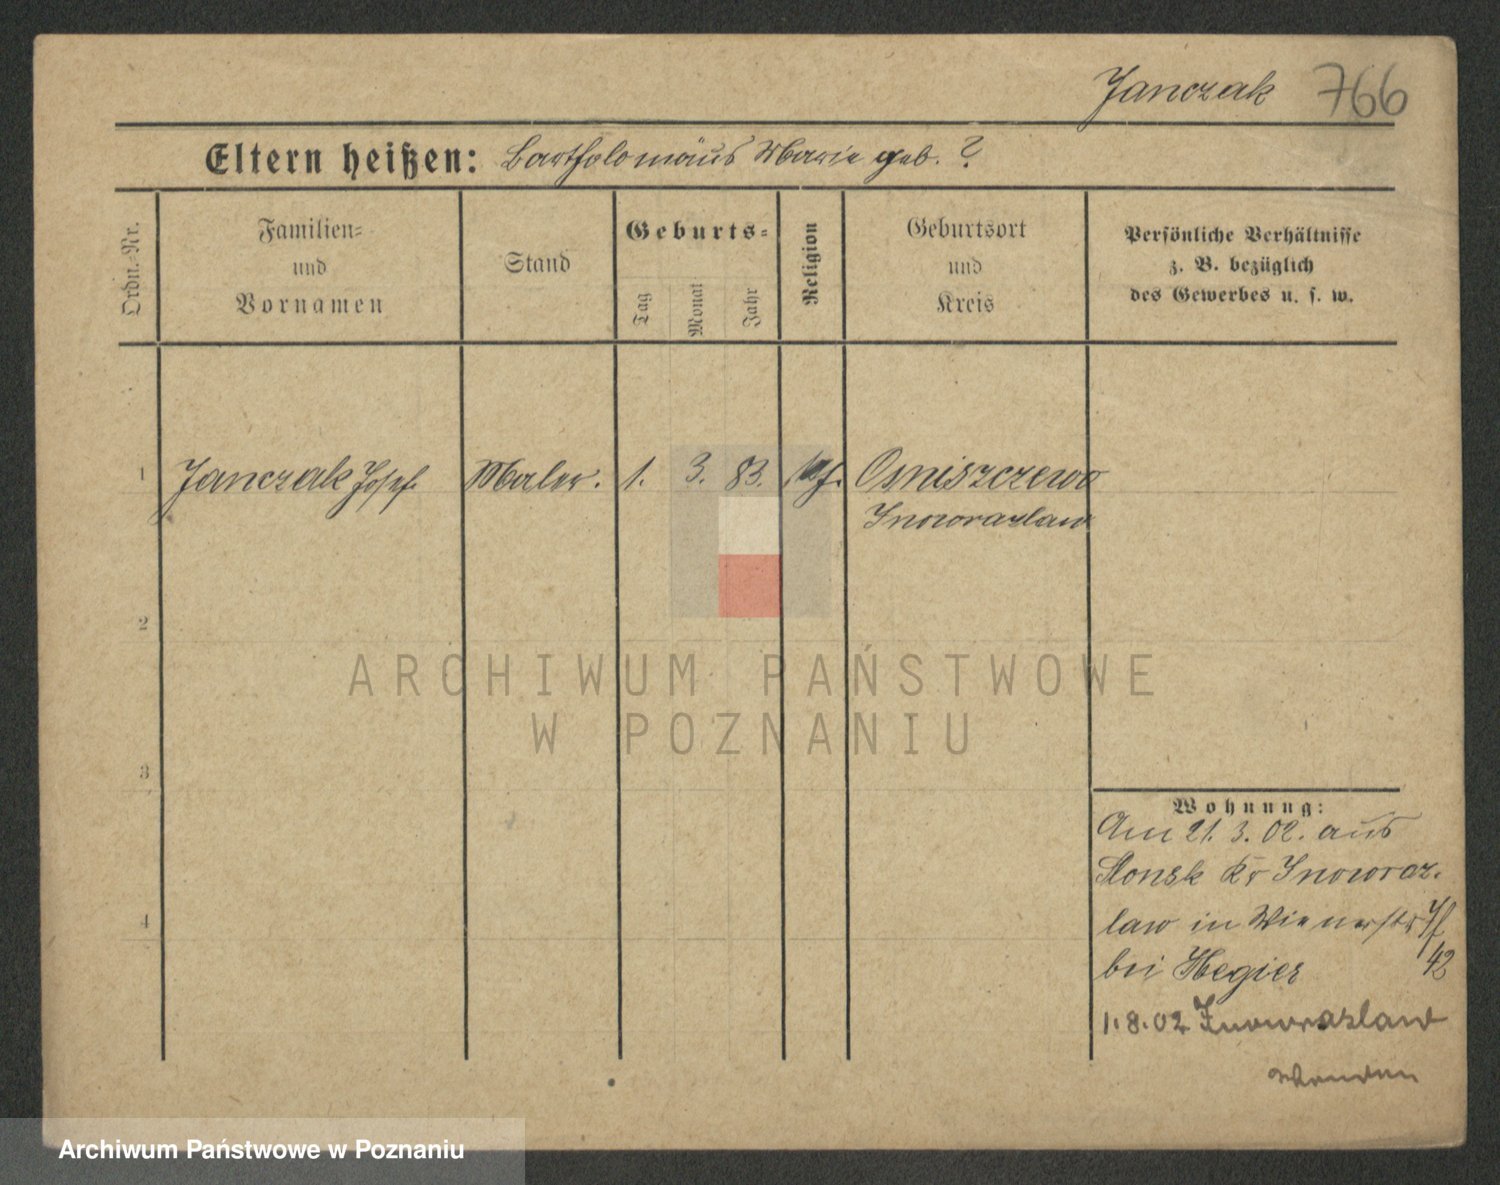 Janczak 766
Eltern heißen: Bartholomäus Marie geb. ?
Ordn.-Nr.
Familien-
und
Vornamen
Stand
Geburts-
Tag
Monat
Jahr
Religion
Geburtsort
und
Kreis
Persönliche Verhältnisse
z. B. bezüglich
des Gewerbes u. s. w.
1 Janczak Josef. Maler. 1. 3. 83. Omiszczewo
Inowrazlaw
2
3
4
Wohnung:
Am 21. 3. 02. aus
Slonsk Kr Inowraz-
law in Wienerstr 7/
42
bei Hegier
1.8.02 Inowrazlaw
Wenden
ARCHIWUM PAŃSTWOWE
W POZNANIU
Archiwum Państwowe w Poznaniu